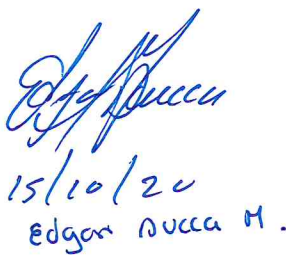 Edgar Ducca
15/10/20
Edgar Ducca M.